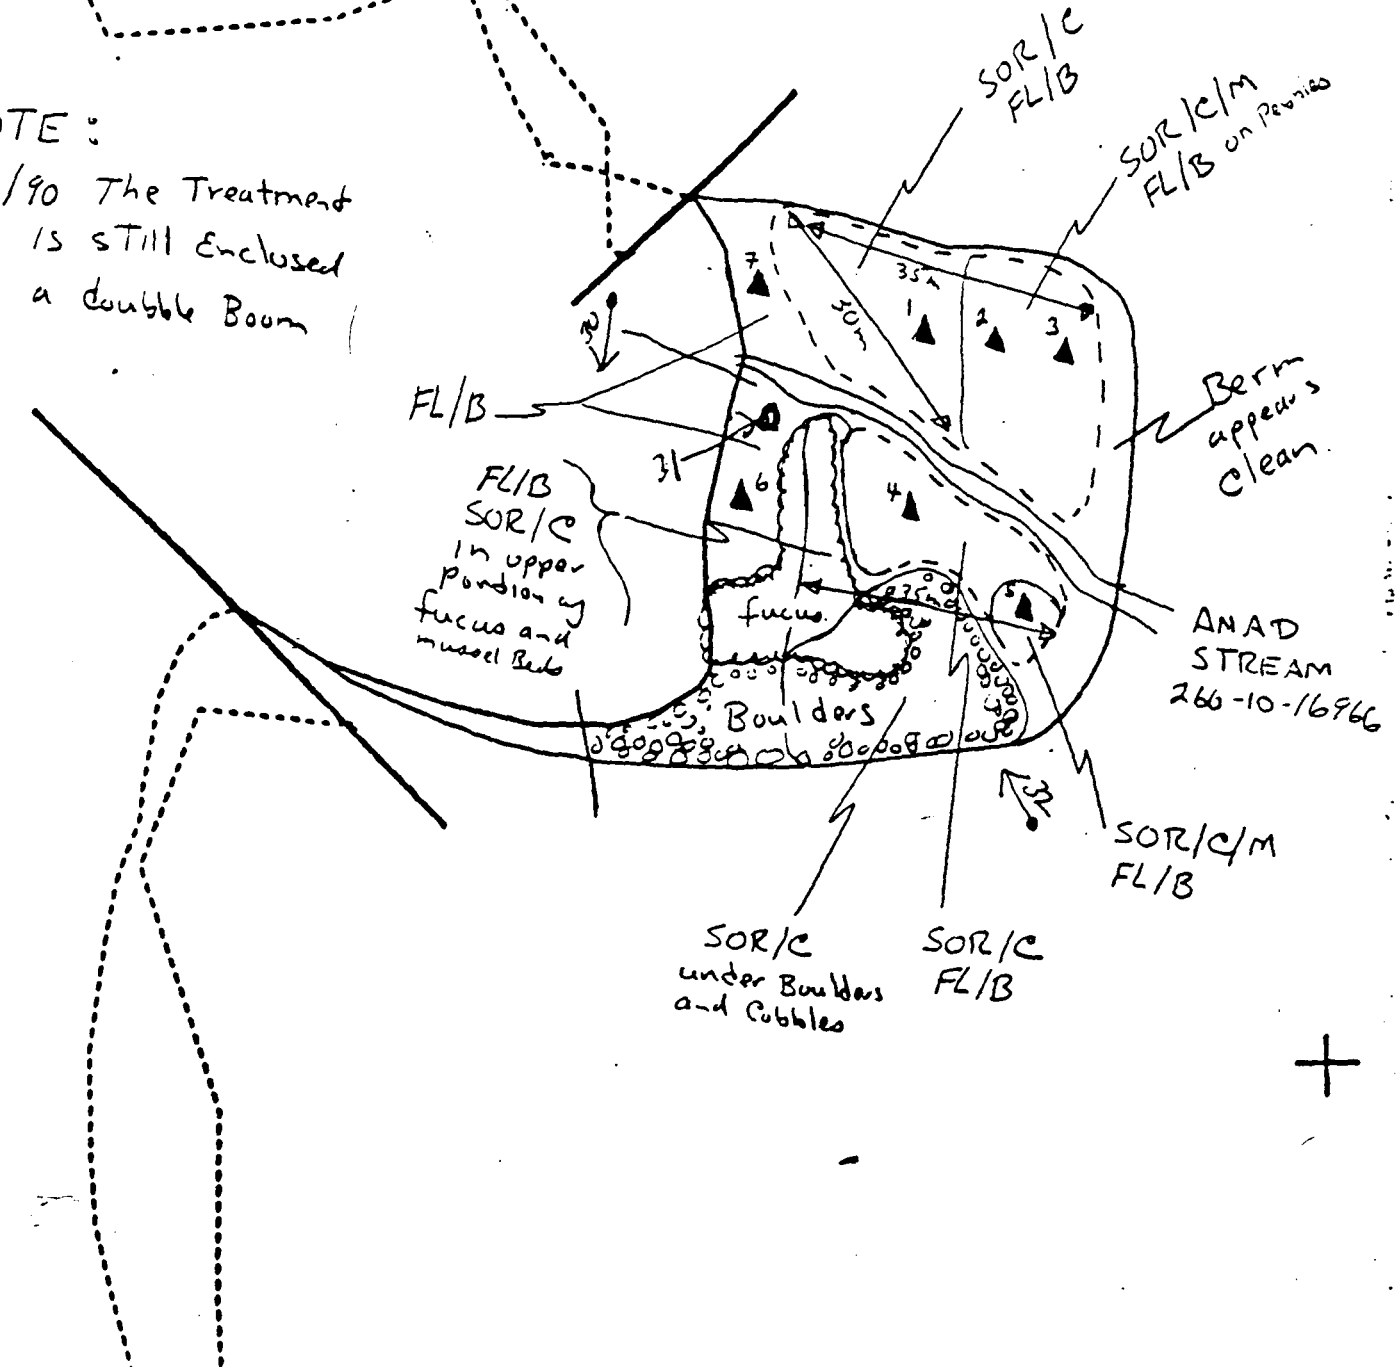 OTE :
/90 The Treatment
is still Enclosed
a doubble Boom
SOR/C
FL/B
SOR/C/M
FL/B on
7
35m
30m
1
2
3
30
FL/B
31
6
4
5
Berm
appears
Clean.
FL/B
SOR/C
in upper
Portion of
fucus and
mussel Beds
fucus
35m
Boulders
ANAD
STREAM
266-10-16966
32
SOR/C/M
FL/B
SOR/C
under Boulders
and Cobbles
SOR/C
FL/B